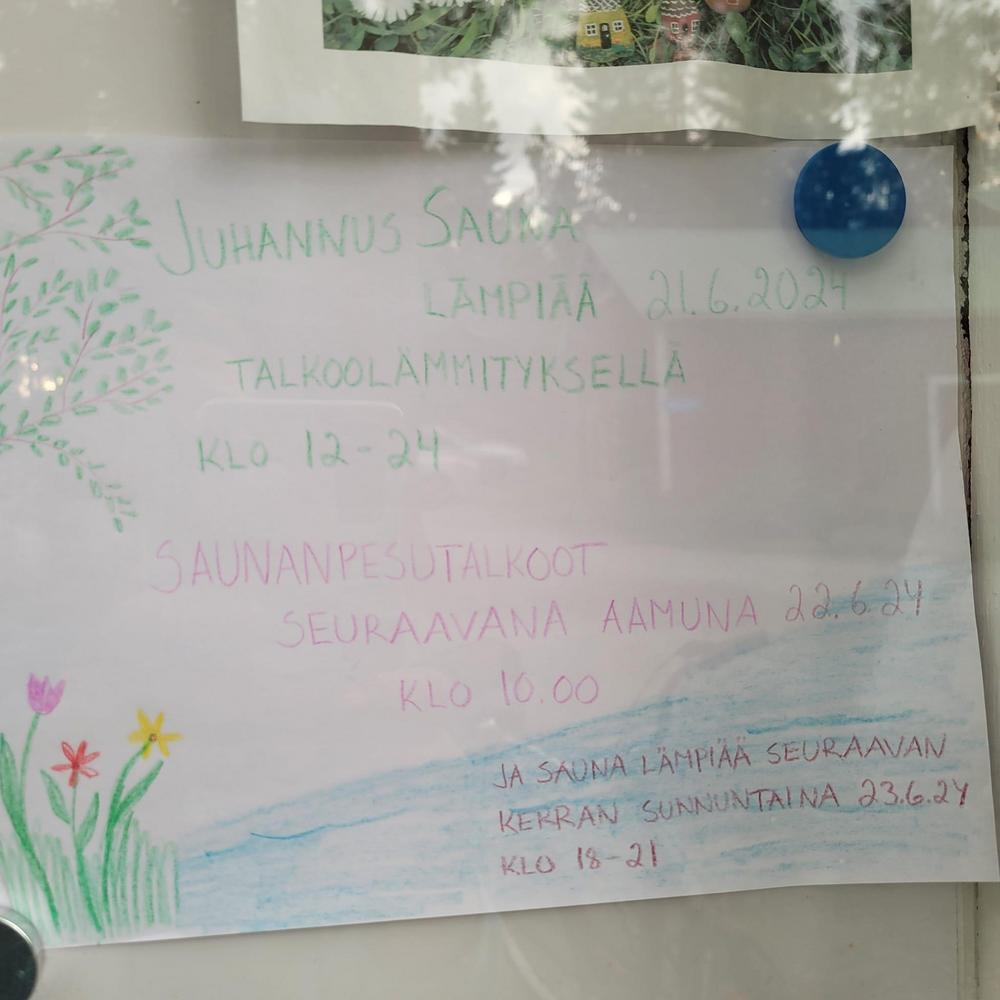 JUHANNUS SAUNA
LÄMPIÄÄ 21.6.2024
TALKOOLÄMMITYKSELLÄ
KLO 12-24
SAUNANPESUTALKOOT
SEURAAVANA AAMUNA 22.6.24
KLO 10.00
JA SAUNA LÄMPIÄÄ SEURAAVAN
KERRAN SUNNUNTAINA 23.6.24
KLO 18-21